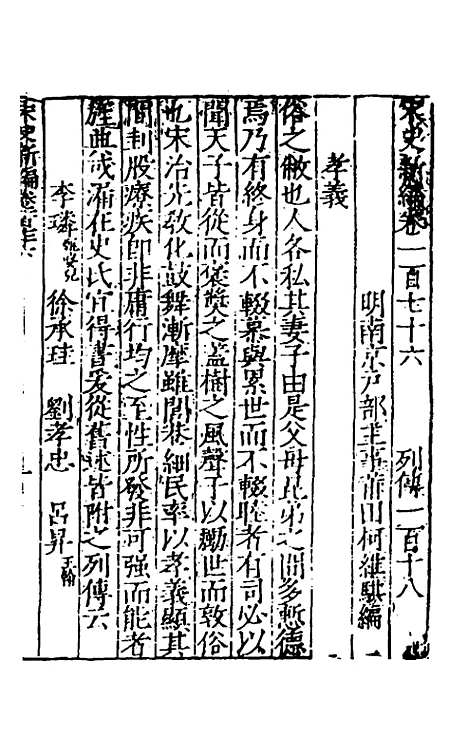 宋史新編卷一百七十六 列傳一百十八
明南京戶部主事莆田柯維騏編
孝義
俗之敝也人各私其妻子由是父母昆弟之閒多慙德
焉乃有終身而不輟慕與累世而不輟聚者有司必以
聞天子皆從而褒奬之蓋樹之風聲于以勵世而敦俗
也宋治先敎化鼓舞漸摩雖閭巷細民率以孝義顯其
間刲股療疾卽非庸行均之至性所發非可強而能者
旌典或漏在史氏宜得書爰從舊述皆附之列傳云
李璘 徐承珪 劉孝忠 呂昇 王翰
宋史新編卷一百七十六